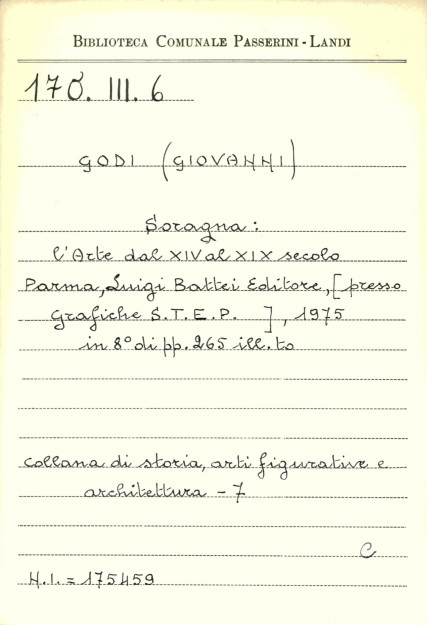 BIBLIOTECA COMUNALE PASSERINI - LANDI
170. III. 6
GODI (GIOVANNI)
Soragna:
l'Arte dal XIV al XIX secolo
Parma, Luigi Battei Editore, [presso
Grafiche S.T.E.P. ], 1975
in 8° di pp. 265 ill.to
collana di storia, arti figurative e
architettura - 7
C
N.I. = 175459